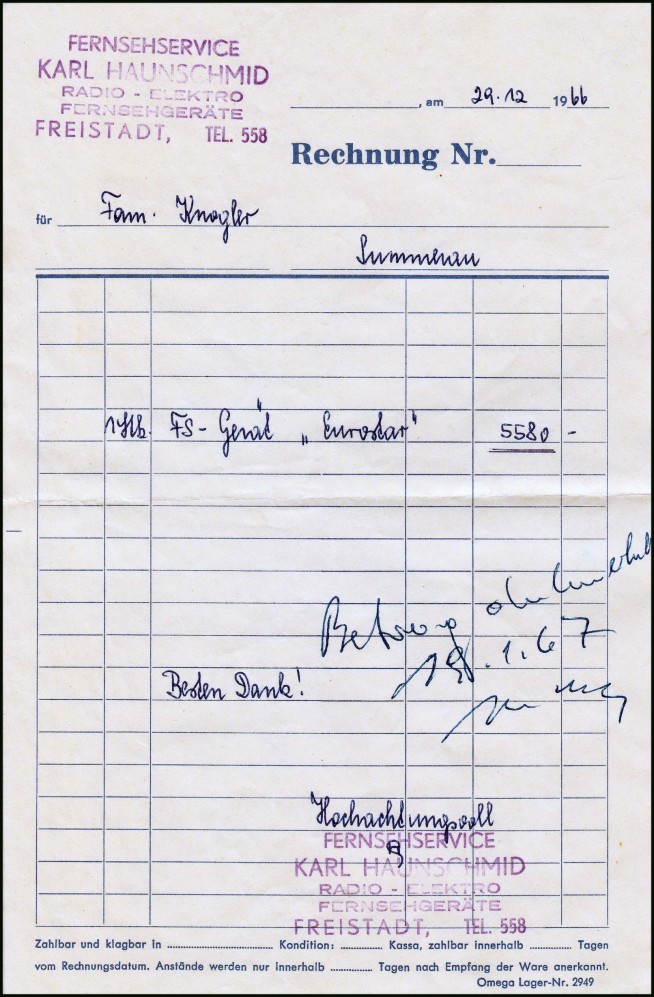 FERNSEHSERVICE
KARL HAUNSCHMID
RADIO - ELEKTRO
FERNSEHGERÄTE
FREISTADT, TEL. 558
, am 29.12 1966
Rechnung Nr.
für Fam. Knogler
Summerau
1 Stk. FS-Gerät „Eurostar" 5580 -
Betrag
19.1.67
Besten Dank!
Hochachtungsvoll
FERNSEHSERVICE
KARL HAUNSCHMID
RADIO - ELEKTRO
FERNSEHGERÄTE
FREISTADT, TEL. 558
Zahlbar und klagbar in ........................ Kondition: .......... Kassa, zahlbar innerhalb .......... Tagen
vom Rechnungsdatum. Anstände werden nur innerhalb .......... Tagen nach Empfang der Ware anerkannt.
Omega Lager-Nr. 2949